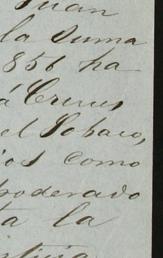 Juan
la Suma
1856 ha
á Cruces
el Tobaco,
ios como
poderado
ta la